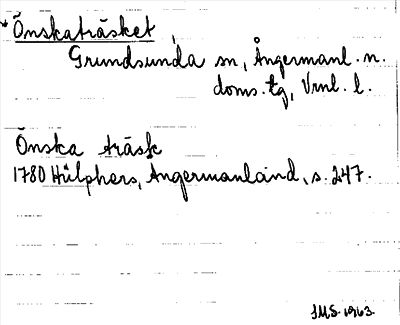 *Önskaträsket,
Grundsunda sn, Ångermanl. n.
doms. tg, Vrnl. l.
Önska träsk
1780 Hülphers, Angermanland, s. 247.
IMS 1963.